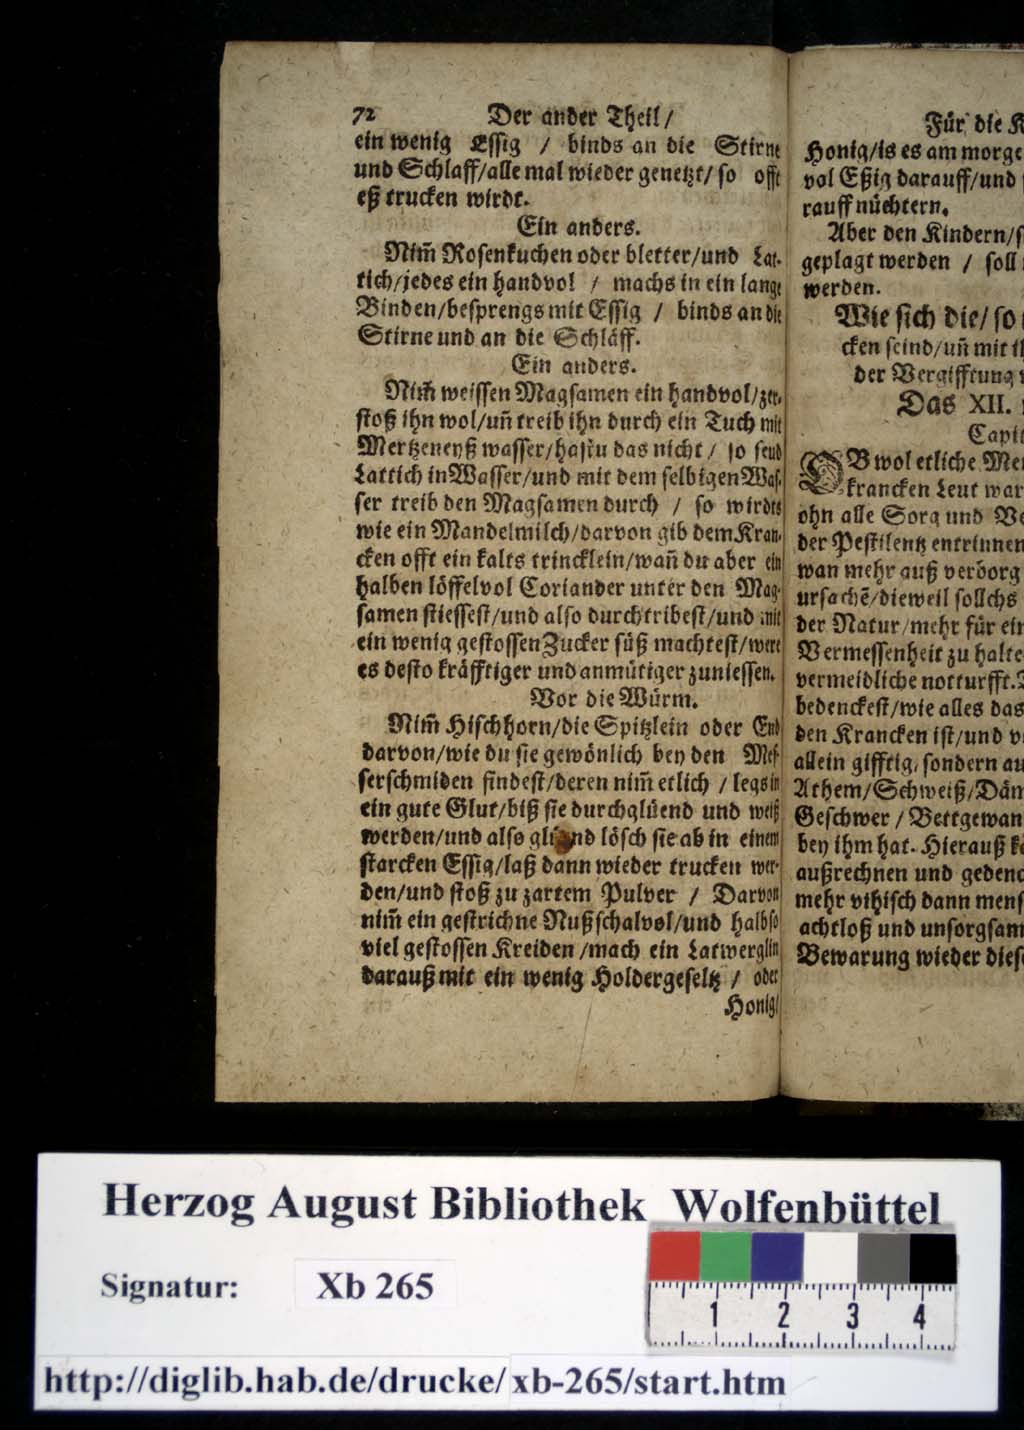 72 Der ander Theil/
ein wenig Essig / binds an die Stirne
und Schlaff/alle mal wieder genetzt/so offt
eß trucken wirdt.
Ein anders.
Nim̃ Rosenkuchen oder bletter/und Lat-
tich/jedes ein handvol / machs in ein lange
Binden/besprengs mit Essig / binds an die
Stirne und an die Schläff.
Ein anders.
Nim̃ weissen Magsamen ein handvol/zer-
stoß ihn wol/uñ treib ihn durch ein Tuch mit
Mertzenenß wasser/hastu das nicht / so seud
Lattich in Wasser/und mit dem selbigen Was-
ser treib den Magsamen durch / so wirdts
wie ein Mandelmilch/darvon gib dem Kran-
cken offt ein kalts trincklein/wañ du aber ein
halben löffelvol Coriander unter den Mag-
samen stiessest/und also durchtribest/und mit
ein wenig gestossen Zucker süß machtest/were
es desto kräfftiger und anmütiger zuniessen.
Vor die Würm.
Nim̃ Hischhorn/die Spitzlein oder End
darvon/wie du sie gewönlich bey den Mes-
serschmiden findest/deren nim̃ etlich / legs in
ein gute Glut/biß sie durchglüend und weiß
werden/und also glüend lösch sie ab in einem
starcken Essig/laß dann wieder trucken wer-
den/und stoß zu zartem Pulver / Darvon
nim̃ ein gestrichne Nußschalvol/und halb so
viel gestossen Kreiden /mach ein Latwerglin
darauß mit ein wenig Holdergeseltz / oder
Honig/
Für die K
Honig/is es am morge
vol Eßig darauff/und
rauff nüchtern.
Aber den Kindern/s
geplagt werden / soll
werden.
Wie sich die/ so
cken seind/uñ mit i
der Vergifftung
Das XII.
Capit
OB wol etliche Me
krancken Leut war
ohn alle Sorg und Ve
der Pestilentz entrinnen
wan mehr auß verborg
ursachẽ/dieweil sollchs
der Natur/mehr für ein
Vermessenheit zu halte
vermeidliche notturfft.
bedenckest/wie alles das
den Krancken ist/und v
allein gifftig, sondern au
Athem/Schweiß/Dän
Geschwer / Bettgewan
bey ihm hat. Hierauß k
außrechnen und gedenc
mehr vihisch dann mens
achtloß und unsorgsam
Bewarung wieder dies
Herzog August Bibliothek Wolfenbüttel
Signatur: Xb 265
1 2 3 4
http://diglib.hab.de/drucke/xb-265/start.htm